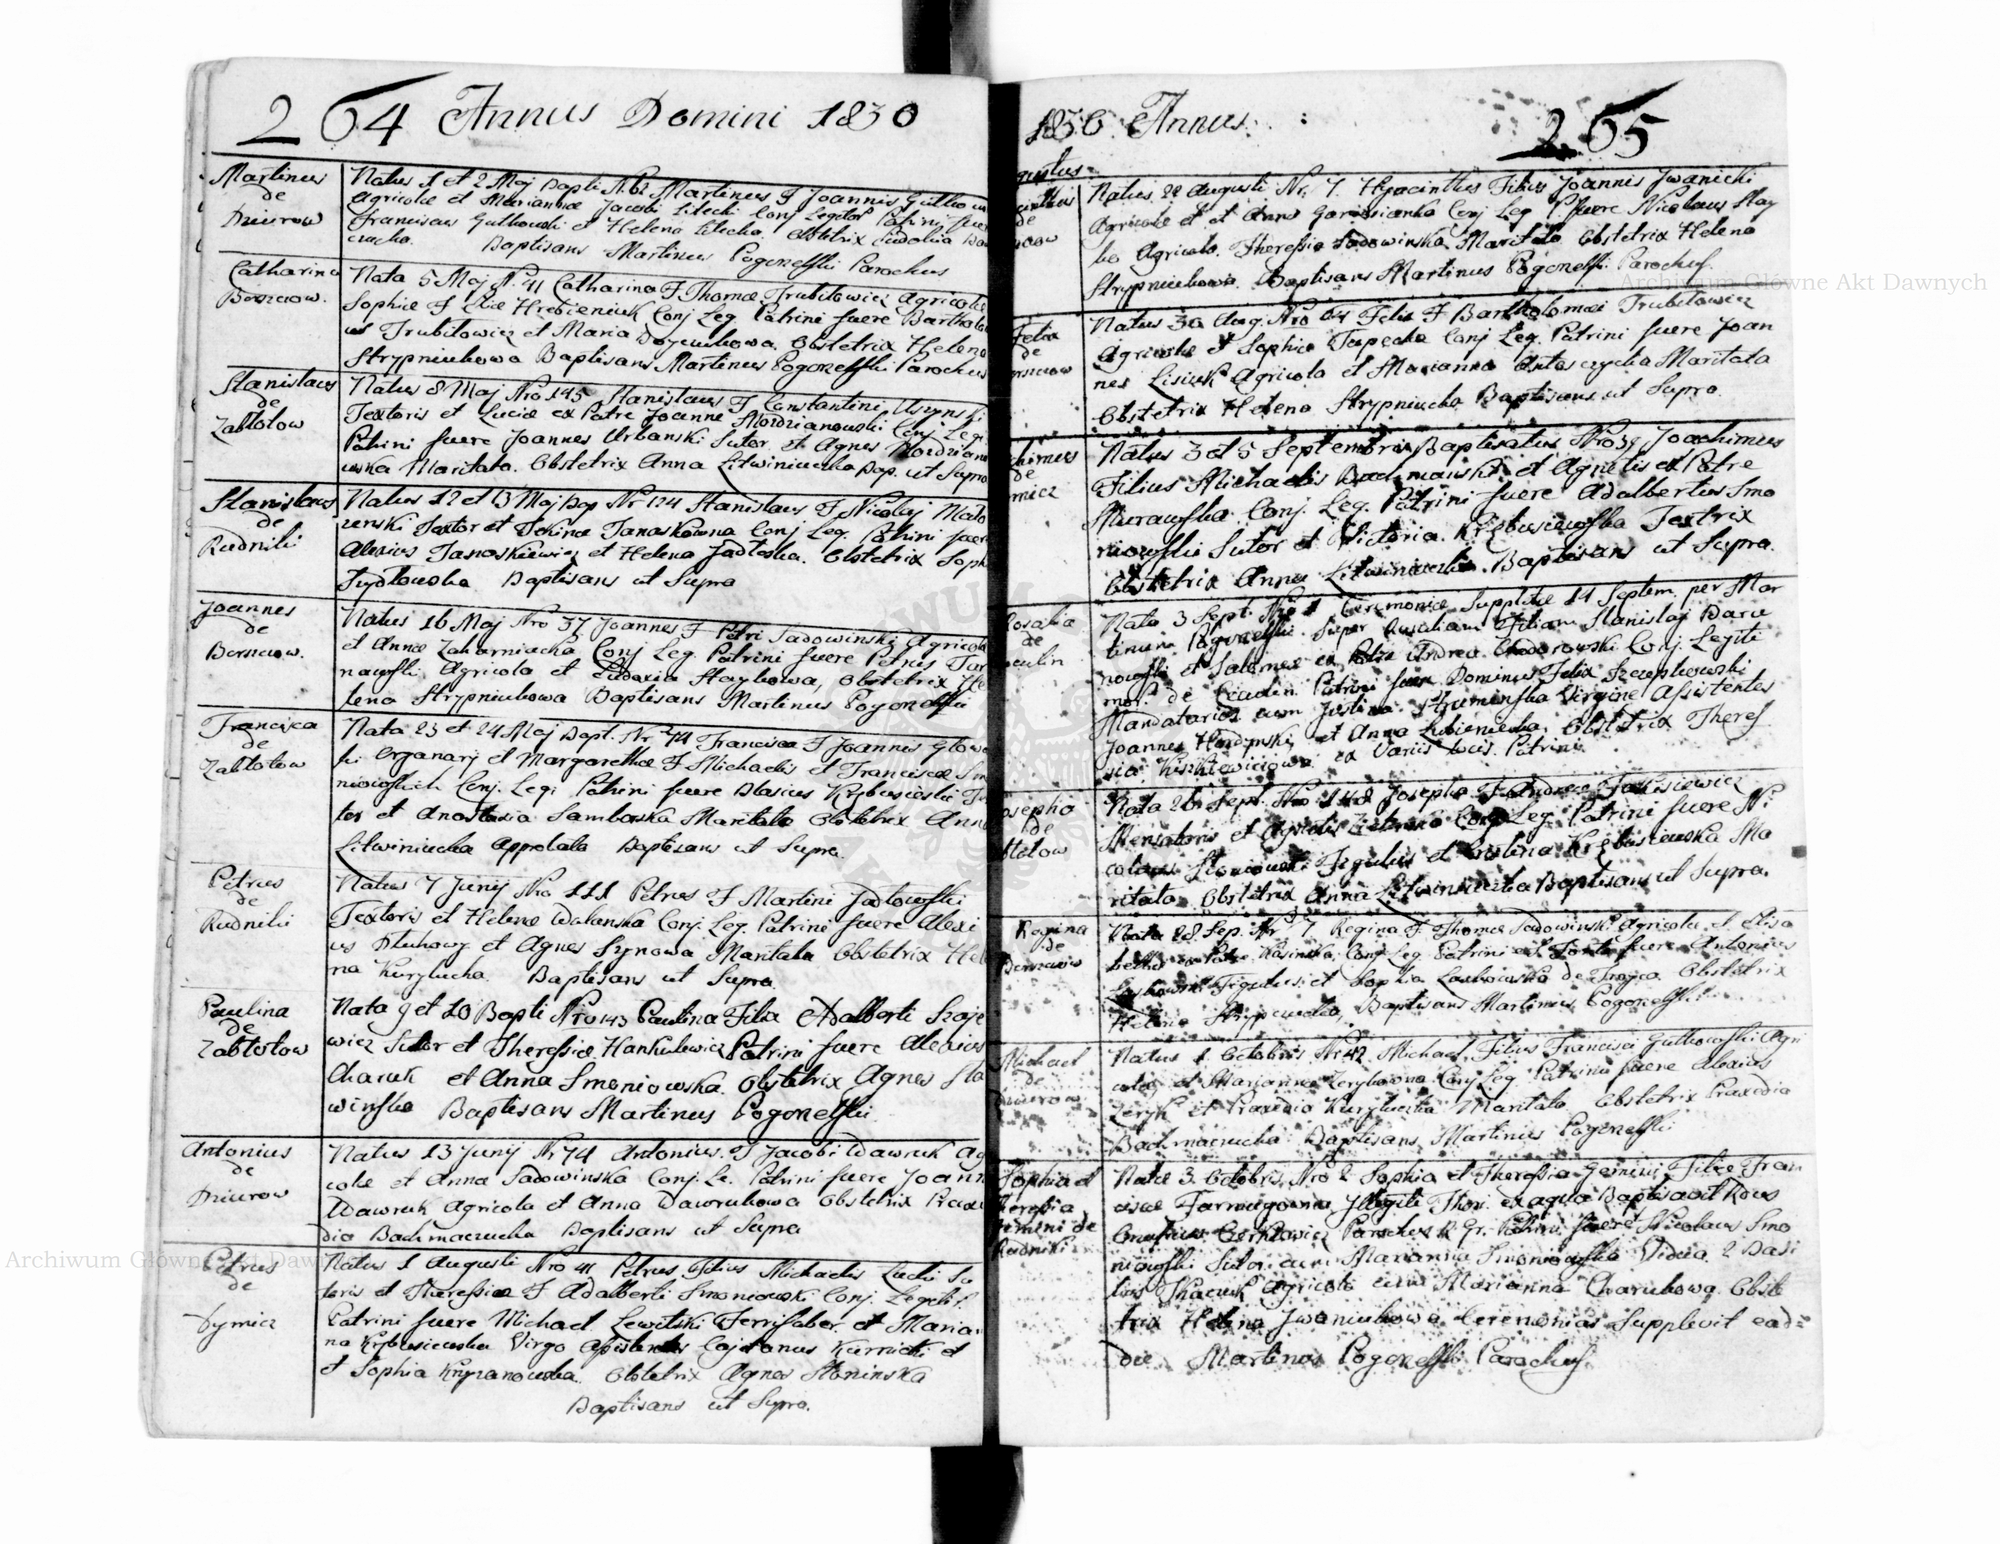 264 Annus Domini 1830
Martinus
de
Dziurow
Natus 1 et 2 Maj Bapti N. 62 Martinus F Joannis
Agricolae et Mariannae Jacobi Litecki Conj Legitor Patrini
Franciscus Gutkowski et Helena Litecka Obstetrix Eudokia
Baptisans Martinus Pogonowski Parochus
Catharina
Borszczow.
Nata 5 Maj N. 41 Catharina F Thomae Trubitowicz Agricolae
Sophiae F Eliae Hrebieniuk Conj Leg. Patrini fuere Bartholo
us Trubitowicz et Maria Obstetrix Helena
Strypniukowa Baptisans Martinus Pogonowski Parochus
Stanislaus
de
Zabłotow
Natus 8 Maj Nro 145 Stanislaus F Constantini
Textoris et Luciae ex Patre Joanne Mordzianowski Conj Legi
Patrini fuere Joannes Urbanski Sutor et Agnes Mordziano
wska Maritata. Obstetrix Anna Litwiniucka Bap. ut Supra
Stanislaus
de
Rudniki
Natus 12 et 13 Maj Bap Nr 124 Stanislaus F Nicolaj
Textor et Tanaskowna Conj Leg. Patrini fuere
Alexius Tanaskiewicz et Helena Jadłoska. Obstetrix Soph
Baptisans ut Supra
Joannes
de
Borszczow.
Natus 16 Maj Nro 37 Joannes F Petri Sadowinski Agricola
et Annae Zaharniacka Conj Leg. Patrini fuere Petrus Tar
nawski Agricola et Eudoxia Haykowa, Obstetrix He
lena Strypniukowa Baptisans Martinus Pogonowski
Francisca
de
Zabłotow
Nata 23 et 24 Maj Bapt. Nr 74 Francisca F Joannis Głowa
ki Organarj et Margarethae F Michaelis et Franciscae Sm
niowskich Conj. Legi Patrini fuere Blasius
tor et Anastasia Sambowska Maritata Obstetrix Anna
Litwiniucka Approbata Baptisans ut Supra.
Petrus
de
Rudniki
Natus 7 Junij Nro 111 Petrus F Martini Jadłowski
Textoris et Helenae Conj. Leg. Patrini fuere Alexi
us et Agnes Szynowa Maritata Obstetrix Hele
na Kuryłucka. Baptisans ut Supra
Paulina
de
Zabłotow
Nata 9 et 10 Bapti Nro 143 Paulina Filia Adalberti Szaje
wicz Sutor et Theressiae Hankulewicz Patrini fuere Alexius
Charuk et Anna Smoniowska. Obstetrix Agnes Sta
winska Baptisans Martinus Pogonowski
Antonius
de
Dziurow
Natus 13 Junij Nr 74 Antonius F Jacobi Wawruk Ag
colae et Anna Sadowinska Conj. Le. Patrini fuere Joann
Wawruk Agricola et Anna Dawrukowa Obstetrix Praxe
dia Bachmaczucka Baptisans ut Supra
Petrus
de
Dymicz
Natus 1 Augusti Nro 41 Petrus Filius Michaelis Su
toris et Theressiae F Adalberti Smoniowski Conj. Legit.
Patrini fuere Michael Lewitski Ferrifaber et Marian
na Virgo Assistentes Cajetanus Kurnicki et
et Sophia Obstetrix Agnes Stoninska
Baptisans ut Supra.
1830 Annus. 265
gustus
cinthus
de
Natus 22 Augusti Nr. 7. Hyacinthus Filius Joannis Jwanicki
Agricolae et Anna Conj Leg P. fuere Nicolaus Hay
ko Agricola. Theressia Sadowinska Maritata. Obstetrix Helena
Strypniukowa. Baptisans Martinus Pogonowski Parochus.
Felix
de
Natus 30 Aug. Nro 64 Felix F Bartholomaei Trubitowicz
Agricolae et Sophia Conj Leg. Patrini fuere Joan
nes Lisiuk Agricola et Marianna Maritata
Obstetrix Helena Strypniucka Baptisans ut Supra.
chimus
de
micz
Natus 3 et 5 Septembris Baptisatus Nro 39 Joachimus
Filius Michaelis Bachmanski et Agnetis ex Patre
Murawska Conj. Leg. Patrini fuere Adalbertus Smo
niowski Sutor et Victoria Textrix
Obstetrix Anna Litwiniucka. Baptisans ut Supra.
Rosalia
de
Nata 3 Sept. Nro 1 Ceremoniae Suppletae 14 Septem. per Mar
tinum Pogonowski Super Rosaliam Filiam Stanislaj
nowski et Salomeae ex Patre Andrea Chodorowski Conj. Legiti
mor. de Patrini fuere Dominus Felix Szczepkowski
Mandatarius cum Justina Virgine Assistentes
Joannes et Anna Lubieniecka, Obstetrix Theres
sia ex Variis locis Patrini
osepha
de
btotow
Nata 26 Sept. Nro 148 Josepha F Andreae Jakisiewicz
Mensatoris et Agnetis Conj Leg Patrini fuere Ni
colaus Figulus et Cristina Ma
ritata Obstetrix Anna Litwiniucka Baptisans ut Supra.
Regina
de
Nata 28 Sep. Nr 7 Regina F. Thomae Sadowinski Agricola et Elisa
betha ex Patre Conj Leg Patrini fuere Antonius
Figulus et Sophia Laskowska de Trojca. Obstetrix
Helena Baptisans Martinus Pogonowski
Michael
de
Dziurow
Natus 1. Octobris Nr 42 Michael Filius Francisci Gutkowski Agri
colae et Marianna Zerykowna Conj Leg Patrini fuere Alexius
Zeryk et Praxedia Kuryłucka Maritata Obstetrix Praxedia
Bachmaczucka Baptisans Martinus Pogonowski
Sophia et
Theressia
Gemini de
Rudniki
Natae 3. Octobris Nro 2 Sophia et Theressia Gemini Filiae Fran
ciscae Farmugowna Jllegiti Thori ex aqua Baptisavit
Parochus R. Gr. Patrini fuere Nicolaus Smo
niowski Sutor cum Marianna Smoniowska Vidua 2 Basi
lius Tkaczuk Agricola cum Marianna Charukowa. Obste
trix Helena Jwaniukowa Ceremonias Supplevit ead=
die Martinus Pogonowski Parochus
Archiwum Główne Akt Dawnych
Archiwum Główne Akt Dawnych